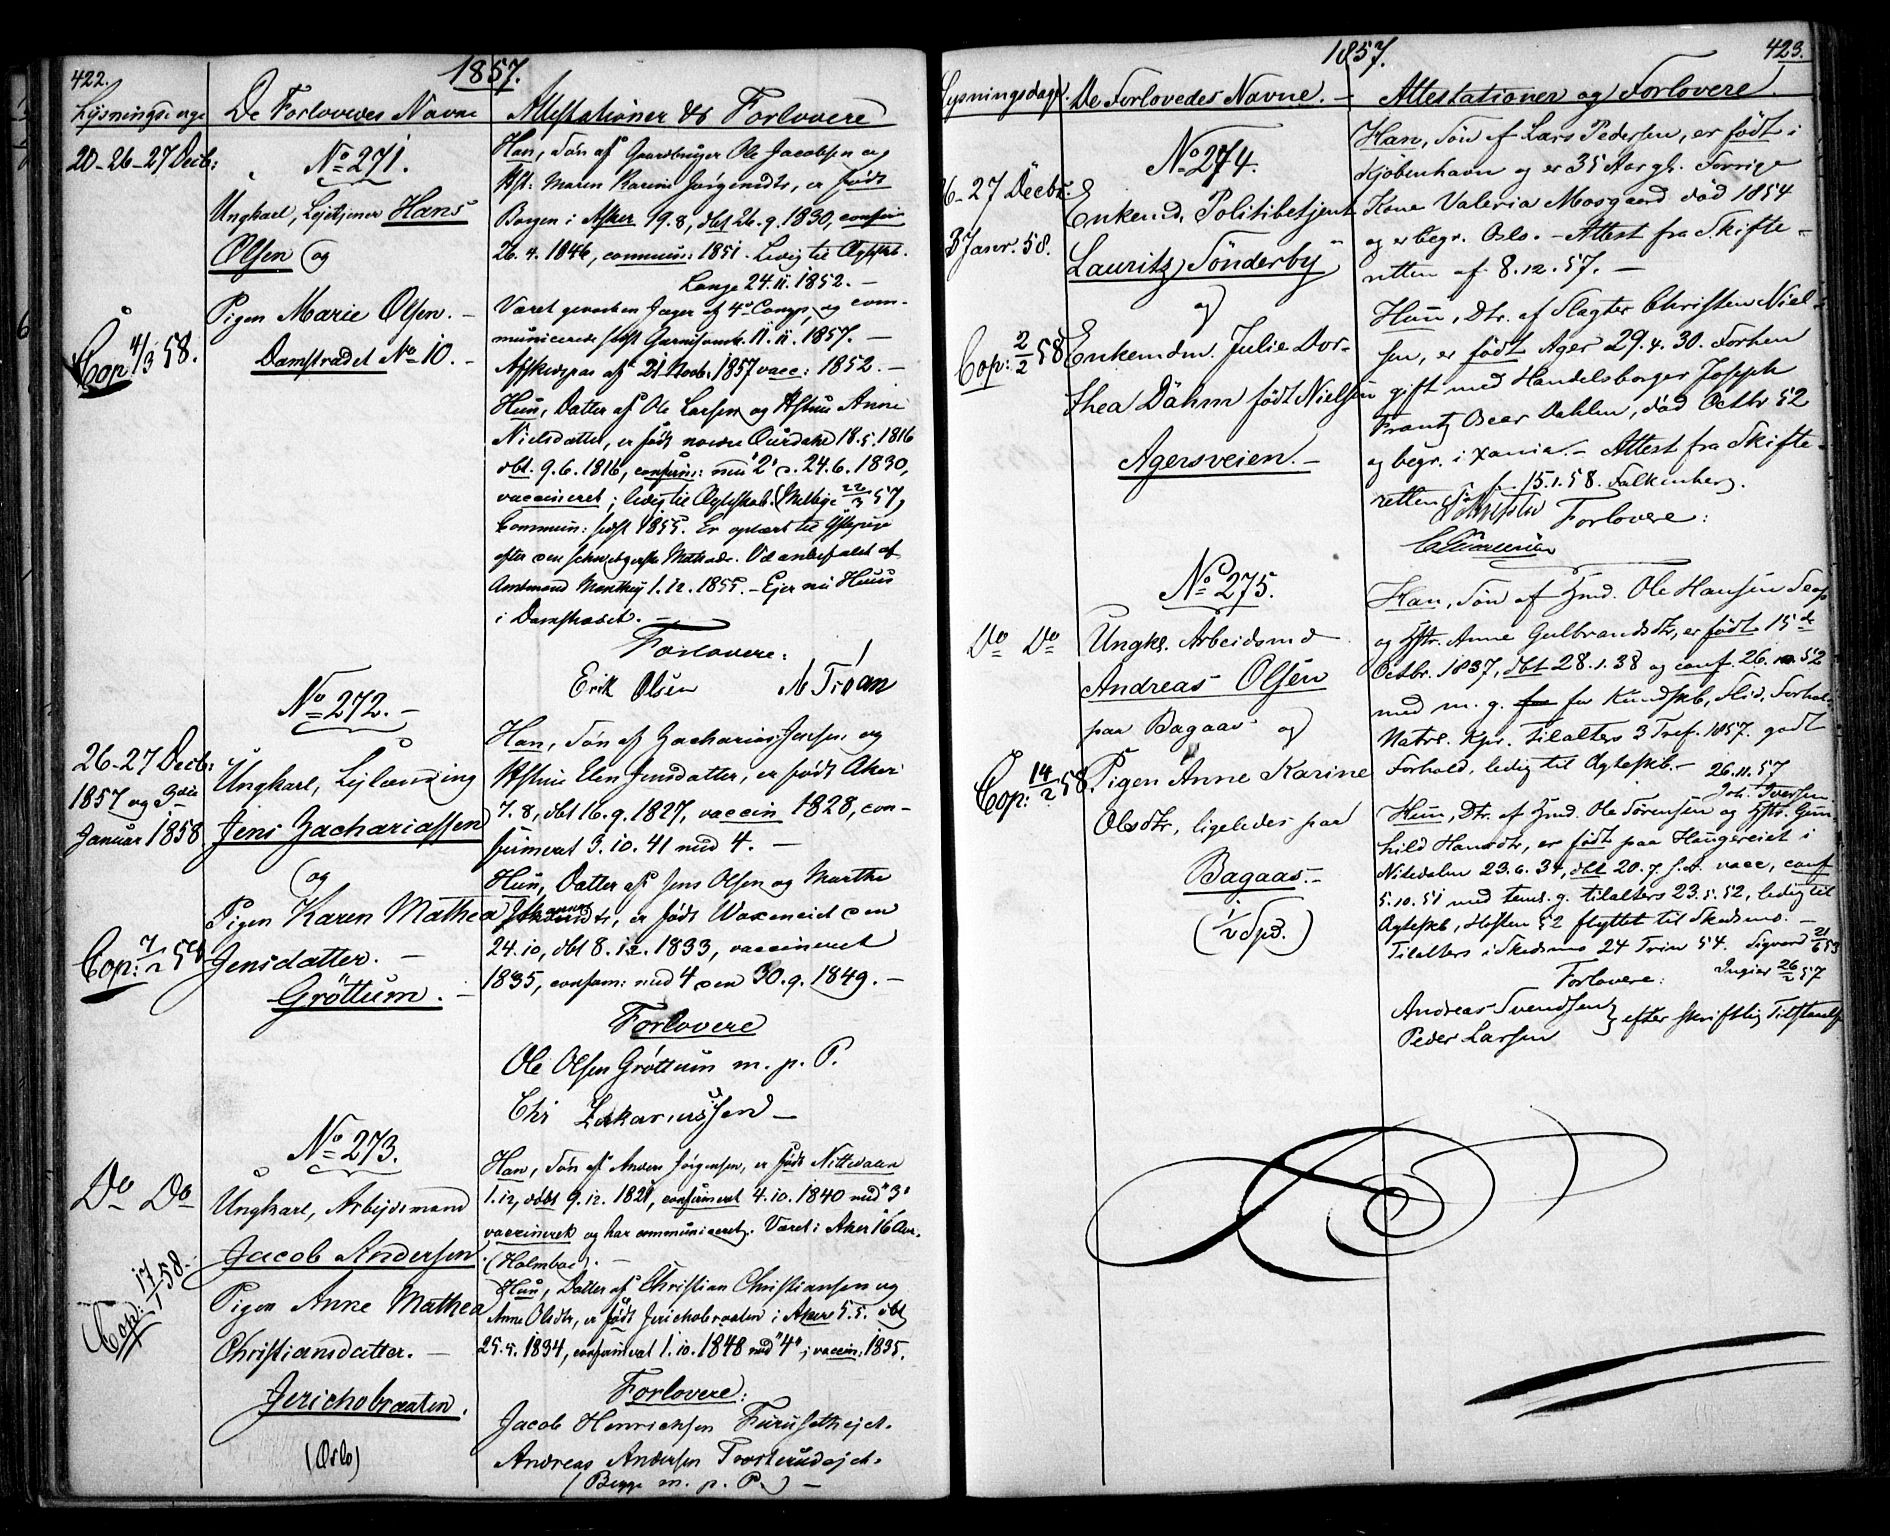 422.
1857.
De Forlovedes Navne
Attestationer & Forlovere
20-26-27 Decb:
No 271.
Ungkarl, Lejetjener Hans
Olsen og
Pigen Marie Olsen. -
Damstrædet No 10. -
Cop 4/3 58.
Han, Søn af Gaardbruger Ole Jacobsen og
Hst: Maren Karine Jørgensdtr, er født
Borgen i Asker 19.8, dbt 26.9.1830, confir
26.4.1846, commun: 1851. Ledig til Ægtesk.
Lange 24.11.1852. -
Været geworben Jæger af 4de Comp, og com-
municerede sidst Garnisonsm. 11.11.1857. -
Afskedspas af 21 Novb. 1857 vacc: 1852. -
Hun, Datter af Ole Larsen og Hstru Anne
Nielsdatter, er født nordre Ourdahl 18.5.1816
dbt. 9.6.1816, confirm: med 2 d. 24.6.1830,
vaccineret; ledig til Ægteskab. (Melbye 22/3 57,
Commun: sidst 1855. Er oplært til
efter den Methode. Vel anbefalet af
Amtmand 1.12.1855. - Ejer nu Huus
i Damstrædet. -
Forlovere:
Erik Olsen
M Troan
No 272. -
26-27 Decb:
1857 og 3die
Januar 1858
Ungkarl, Lejlænding
Jens Zachariassen
og
Pigen Karen Mathea
Jensdatter. -
Grøttum. -
Han, Søn af Zacharias Jensen og
Hstru Elen Jensdatter, er født Aker
7.8, dbt 16.9.1827, vaccin 1828, con-
firmeret 3.10.41 med 4. -
Hun, Datter af Jens Olsen og Marthe
er født Voxeneiet den
24.10, dbt 8.12.1833, vaccineret
1835, confirm: med 4 den 30.9.1849. -
Forlovere
Ole Olsen Grøttum m. p. P.
Chr Zakariassen -
No 273.
Do Do
Ungkarl, Arbejdsmand
Jacob Andersen
Pigen Anne Mathea
Christiansdatter. -
Jerichobraaten.
(Oslo)
Cop: 17/1 58.
Han, Søn af Anders Jørgensen, er født Nittedalen
1.12, døbt 9.12.1821, confirmeret 4.10.1840 med "3"
vaccineret og har communiceret. Været i Aker 16 Aar.
(Holmboe). -
Hun, Datter af Christian Christiansen og
Anne Olsdtr, er født Jerichobraaten i Akers 5.5. dbt
25.5.1834, confirmeret 1.10.1848 med "4"; vaccin: 1835.
Forlovere:
Jacob Henrichsen Furusethejet.
Andreas Andersen Trosterudejet.
(Begge m. p. P.) -
1857.
423.
Lysningsdage.
De Forlovedes Navne. -
Attestationer og Forlovere.
No 274.
26-27 Decbr.
3 Janr. 58.
Enkemd. Politibetjent
Lauritz Sønderby
og
Enkemdm. Julie Dor-
thea Dahm født Nielsen
Agersveien. -
Cop: 2/2 58
Han, Søn af Lars Pedersen, er født i
Kjøbenhavn og er 35 Aar gl. Forrige
Kone Valeria Mosgaard død 1854
og er begr. Oslo. - Attest fra Skifte-
retten af 8.12.57. -
Hun, Dtr. af Slagter Christen Niel-
sen, er født Ager 29.4.30. Forhen
gift med Handelsborger Joseph
Frantz Beer Dahlm, død Octbr 52
og begr. i Xania. - Attest fra Skifte-
retten 15.1.58. Falkenberg.
Forlovere:
No 275.
Do Do
Ungkl. Arbeidsmd
Andreas Olsen
paa Bagaas og
Pigen Anne Karine
Olsdtr, ligeledes paa
Bagaas. -
(1/2 Spd.)
Cop: 14/2 58
Han, Søn af Hmd. Ole Hansen
og Hstr. Anne Gulbrandsdtr, er født 15de
Octbr. 1837, dbt 28.1.38 og conf. 26. 52
med m. g. for Kundskb, Flid, Forhol.
Natrl. Kpr. tilalters 3 Tref. 1857. godt
Forhold, ledig til Ægteskb. - 26.11.57
Joh. Iversen.
Hun, Dtr. af Hmd. Ole Sørensen og Hstr. Gun-
hild Hansdtr, er født paa Haugereiet i
Nitedalen 23.6.34, dbt 20.7. s.A. vacc, conf
5.10.51 med temd. g. tilalters 23.5.52, ledig til
Ægteskb, Høsten 52 flyttet til Skedsmo. -
Tilalters i Skedsmo 24 Trin 54. Sigvard 21/6 53
Ingier 26/2 57
Forlovere:
Andreas Svendsen
Peder Larsen
efter skriftlig Tilstaaelse